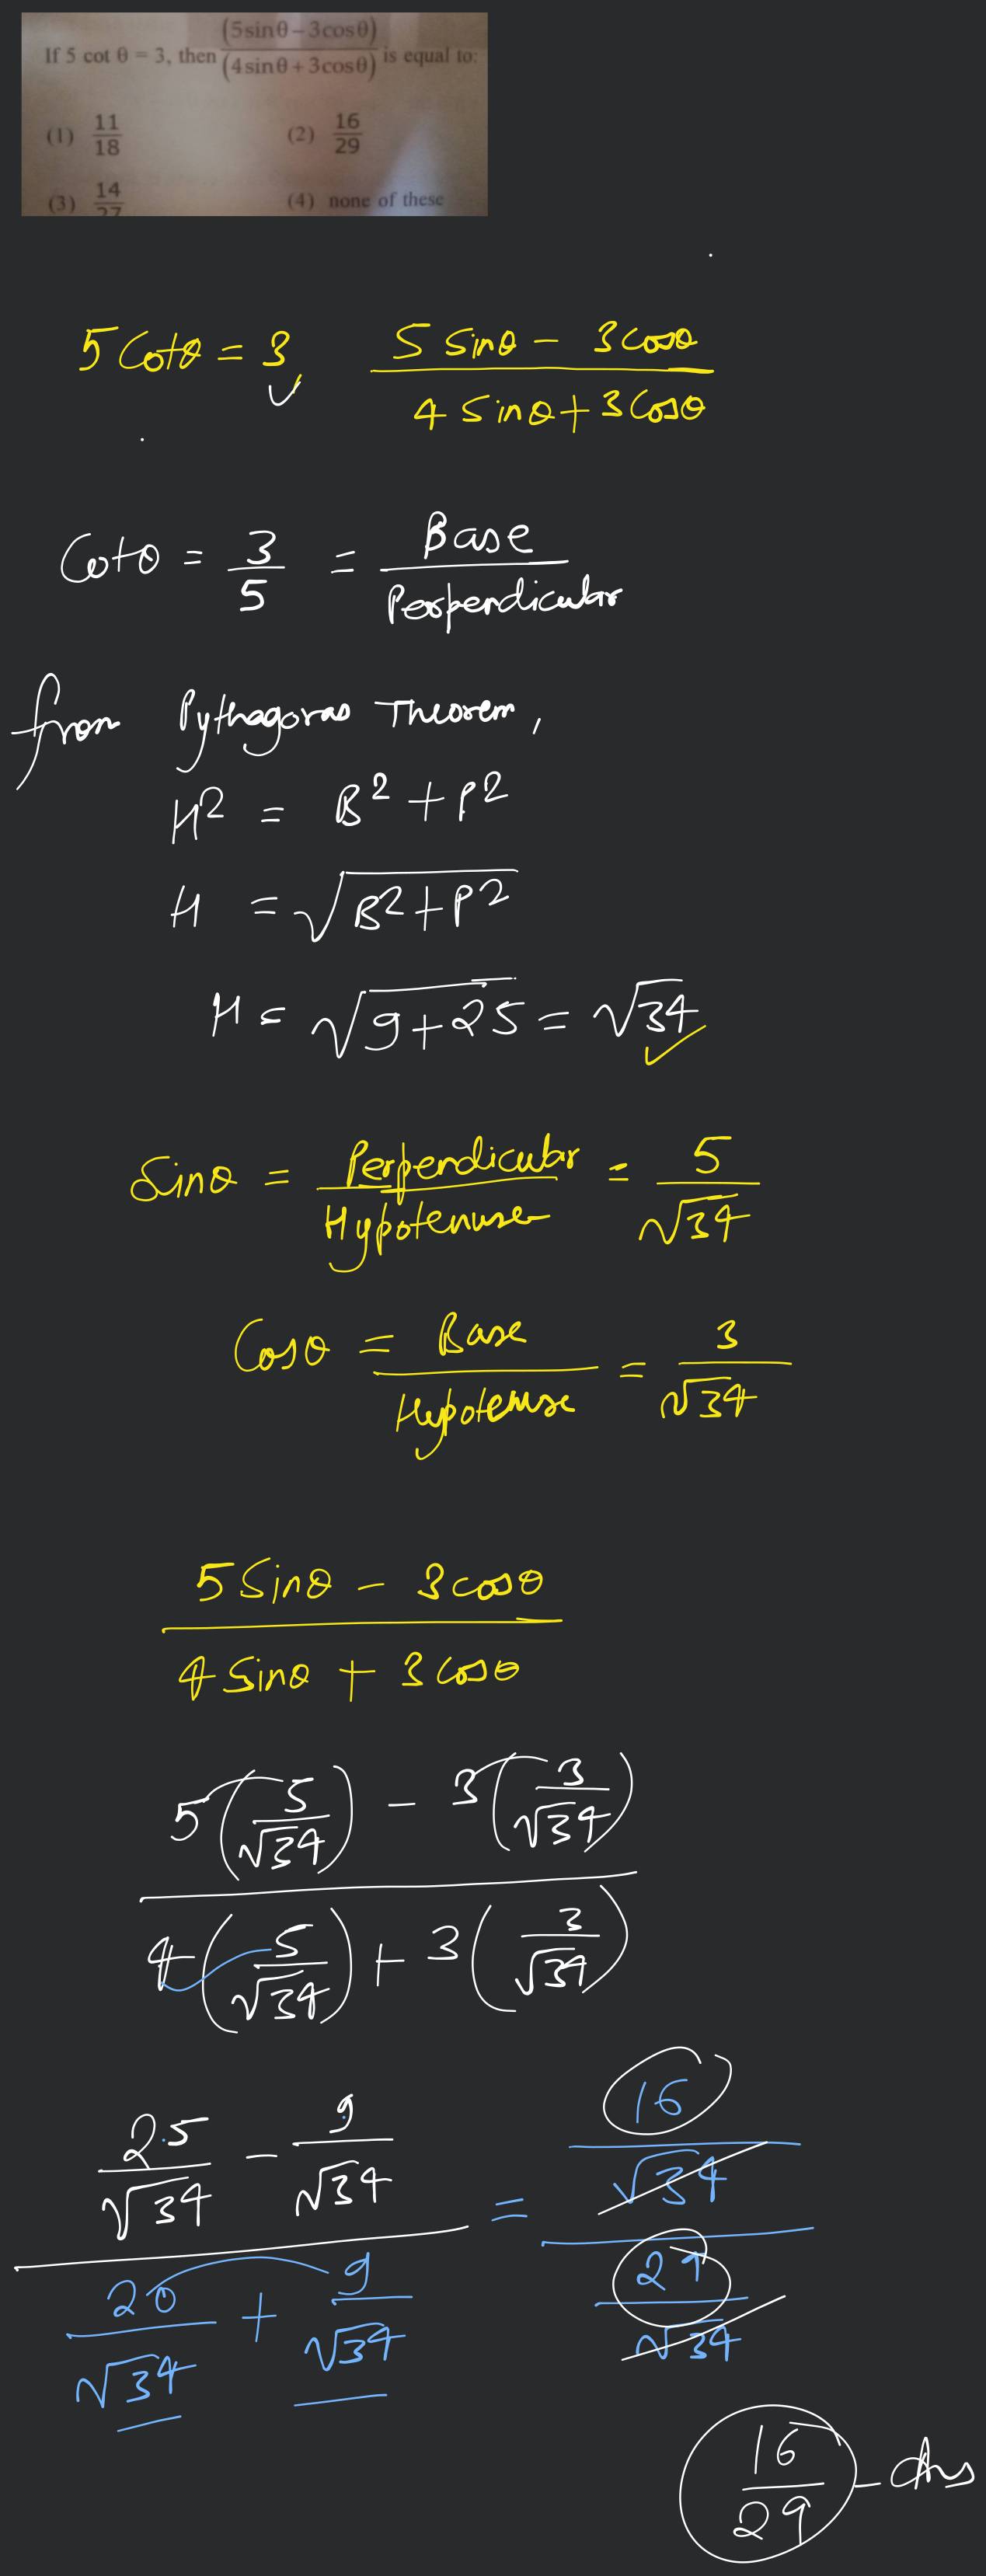 If 5 cot θ = 3, then (5sinθ−3cosθ)/(4sinθ+3cosθ) is equal to:
(1) 11/18 (2) 16/29
(3) 14/27 (4) none of these
5 Cotθ = 3, (5 Sinθ − 3 Cosθ)/(4 Sinθ + 3 Cosθ)
Cotθ = 3/5 = Base/Perpendicular
from Pythagoras Theorem,
H² = B² + P²
H = √(B²+P²)
H = √(9+25) = √34
Sinθ = Perpendicular/Hypotenuse = 5/√34
Cosθ = Base/Hypotenuse = 3/√34
(5 Sinθ − 3 cosθ)/(4 Sinθ + 3 cosθ)
(5(5/√34) − 3(3/√34))/(4(5/√34) + 3(3/√34))
(25/√34 − 9/√34)/(20/√34 + 9/√34) = (16/√34)/(29/√34)
16/29 - Ans